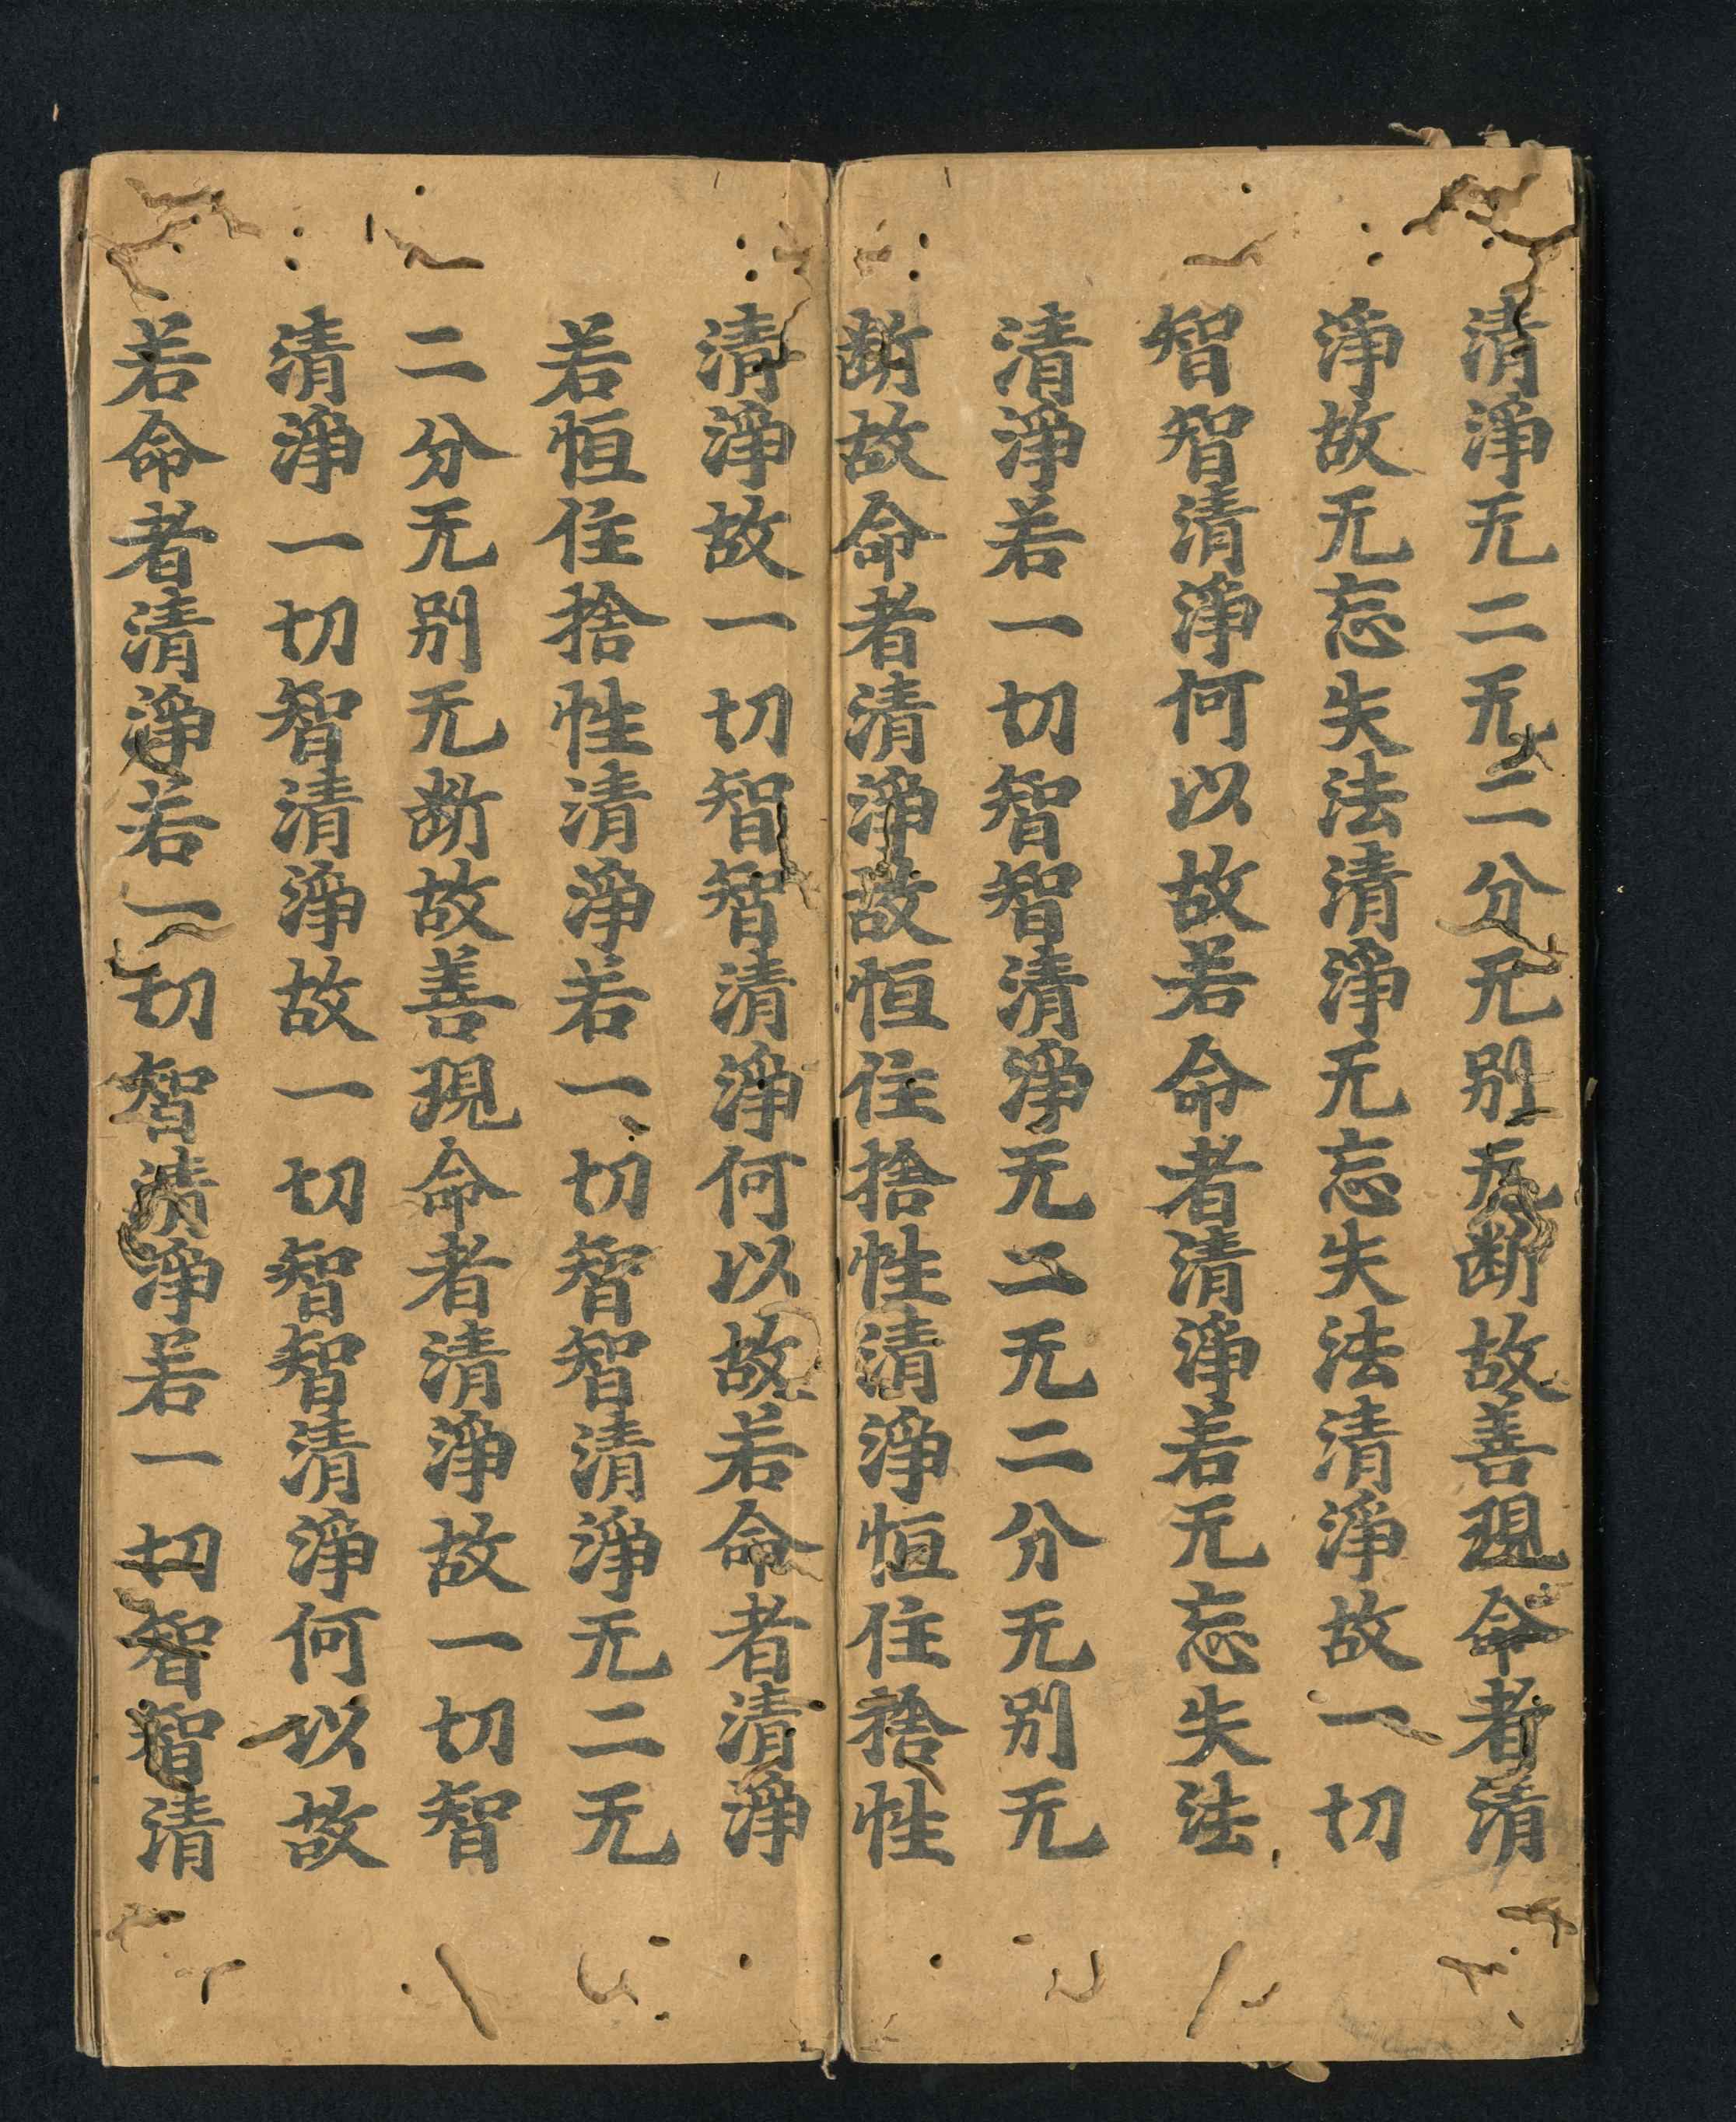 清淨无二无二分无别无断故善現命者清
淨故无忘失法清淨无忘失法清淨故一切
智智清淨何以故若命者清淨若无忘失法
清淨若一切智智清淨无二无二分无别无
断故命者清淨故恒住捨性清淨恒住捨性
清淨故一切智智清淨何以故若命者清淨
若恒住捨性清淨若一切智智清淨无二无
二分无别无断故善現命者清淨故一切智
清淨一切智清淨故一切智智清淨何以故
若命者清淨若一切智清淨若一切智智清